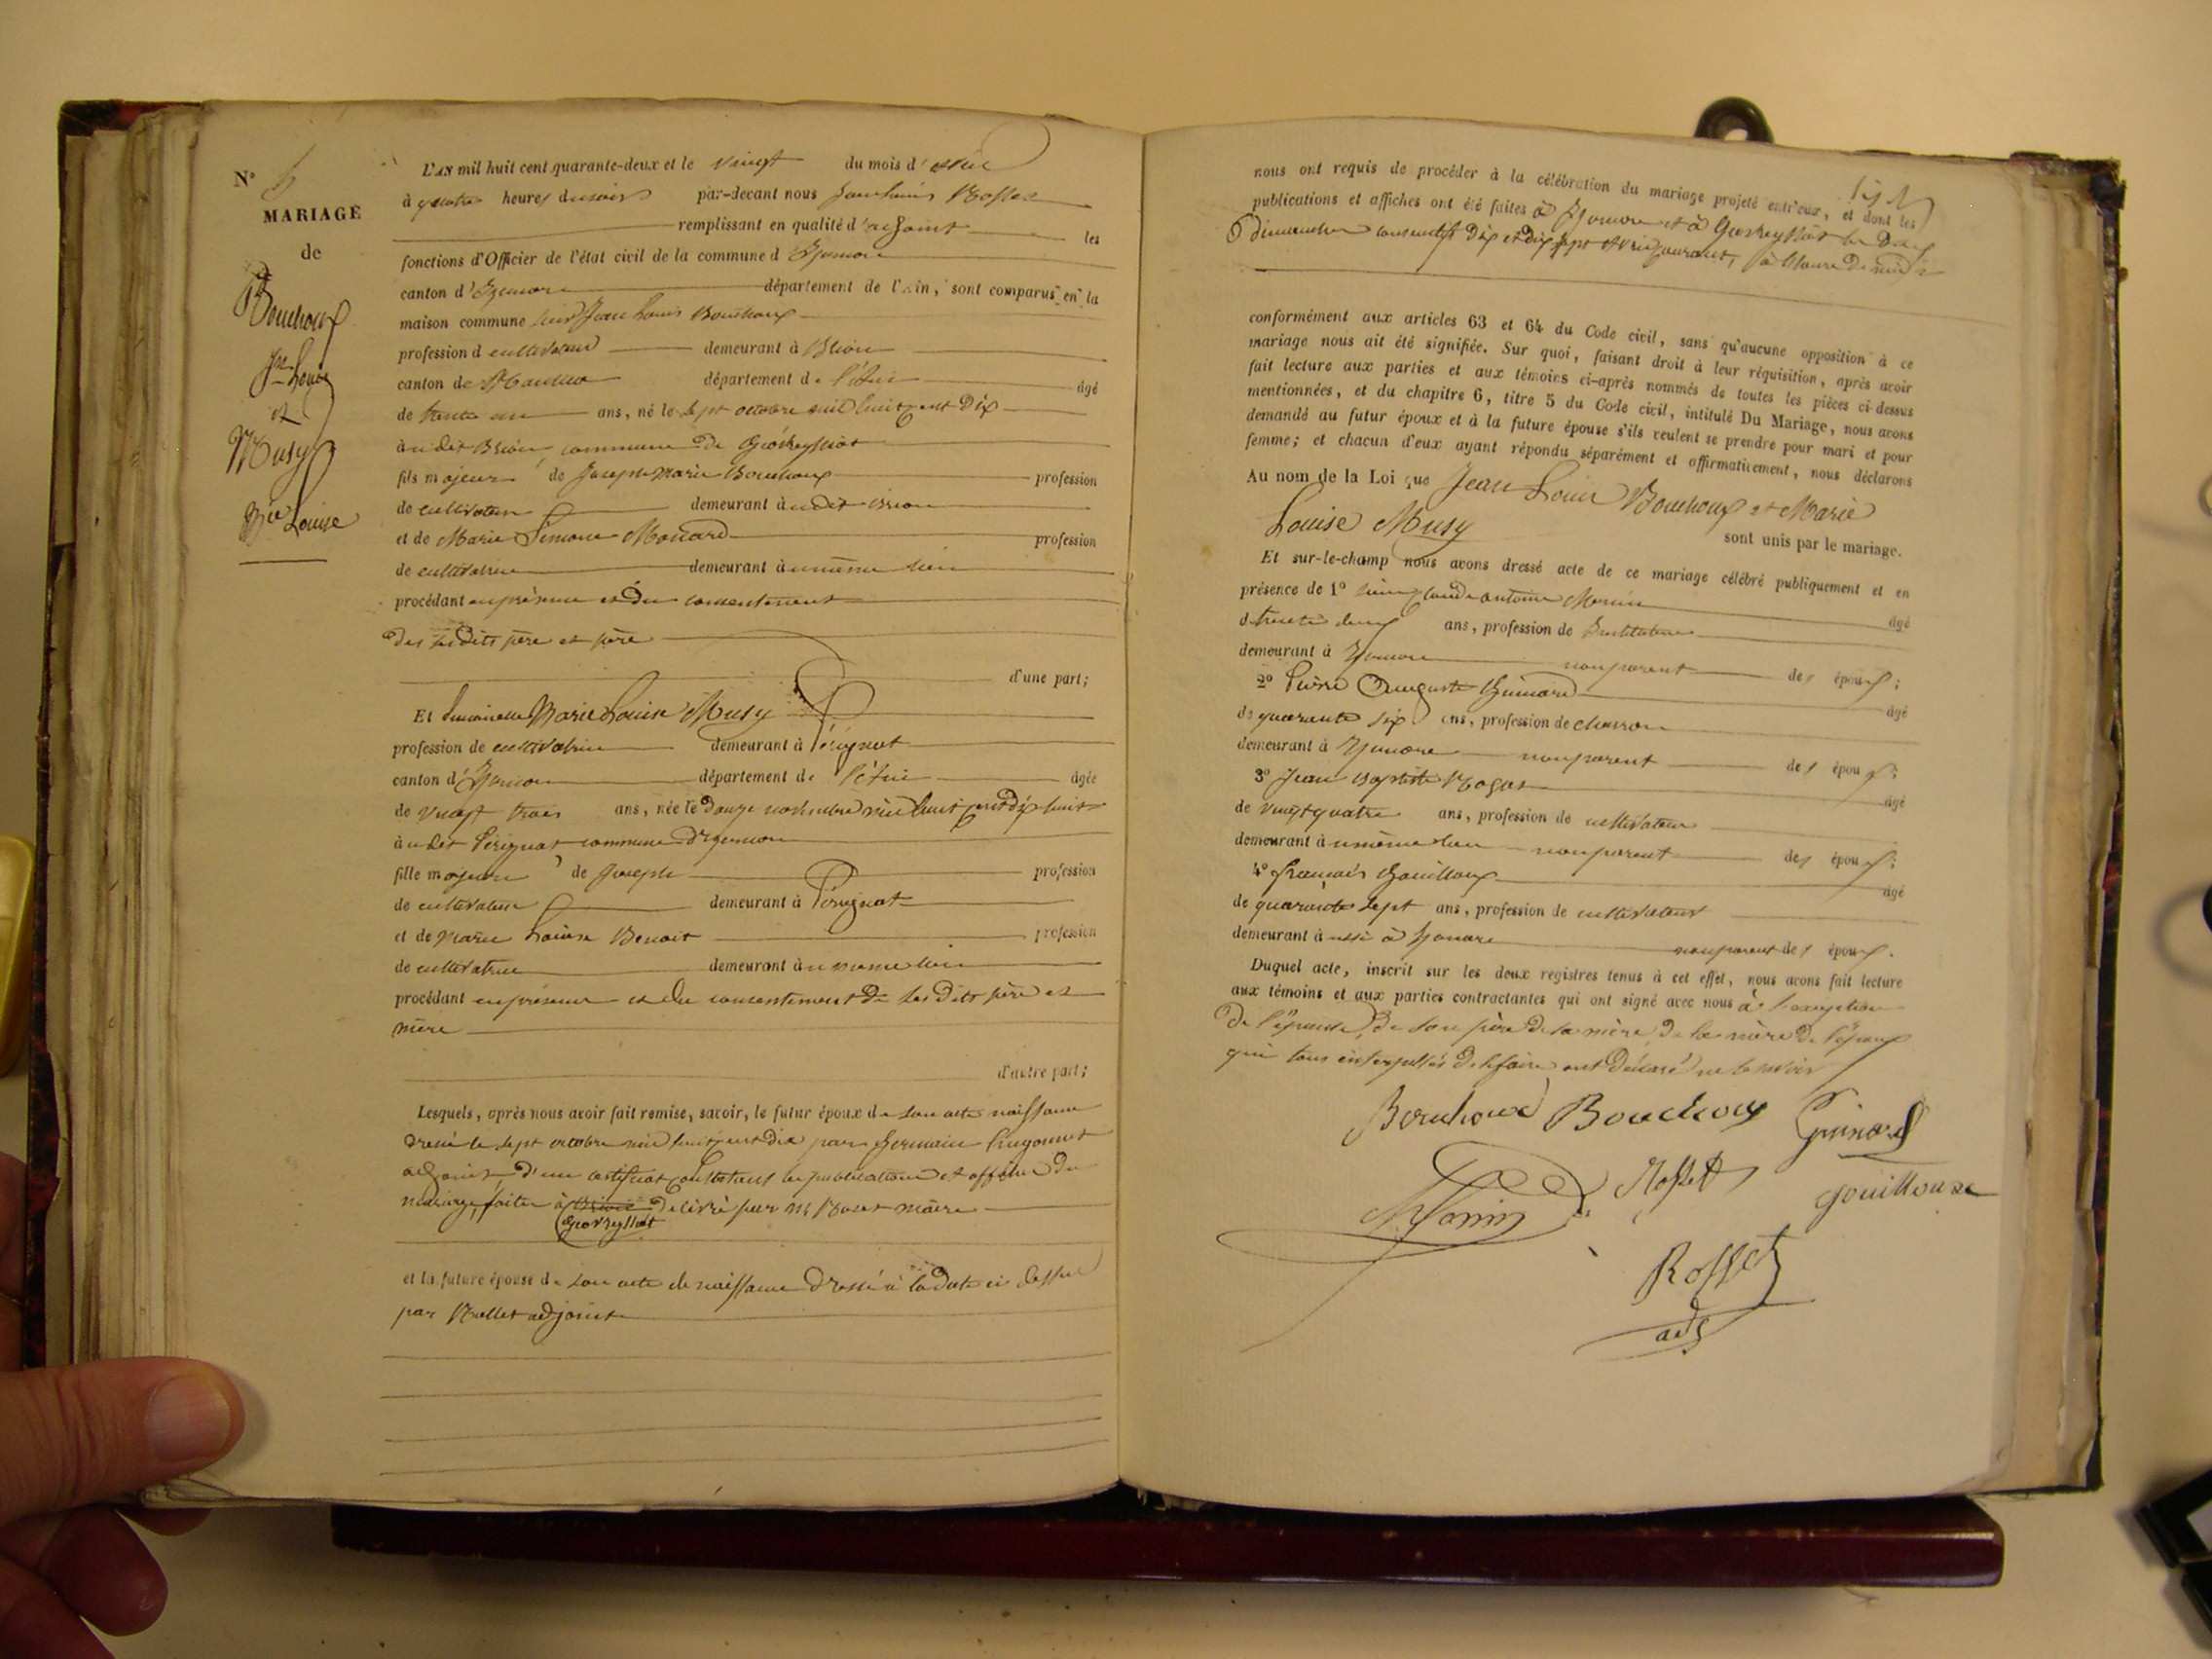 N° 6
MARIAGE
de
Bouchoux
Jn Louis
et
Musy
Mie Louise
L'AN mil huit cent quarante-deux et le vingt du mois d'avril
à quatre heures du soir par-devant nous Jean Louis Rosset
remplissant en qualité d'adjoint les
fonctions d'Officier de l'état civil de la commune d'Izernore
canton d'Izernore département de l'Ain, sont comparus en la
maison commune sieur Jean Louis Bouchoux
profession de cultivateur demeurant à Brion
canton de Nantua département de l'Ain âgé
de trente un ans, né le sept octobre mil huit cent dix
au dit Brion, commune de Géovreyssiat
fils majeur de Joseph Marie Bouchoux profession
de cultivateur demeurant au dit Brion
et de Marie Simone Monard profession
de cultivatrice demeurant au même lieu
procédant en présence et du consentement
des susdits père et père
d'une part;
Et demoiselle Marie Louise Musy
profession de cultivatrice demeurant à Pérignat
canton d'Izernore département de l'Ain âgée
de vingt trois ans, née le douze novembre mil huit cent dix huit
au dit Pérignat commune d'Izernore
fille majeure de Joseph profession
de cultivateur demeurant à Pérignat
et de Marie Louise Benoit profession
de cultivatrice demeurant au même lieu
procédant en présence et du consentement de ses dits père et
mère
d'autre part;
Lesquels, après nous avoir fait remise, savoir, le futur époux de son acte naissance
dressé le sept octobre mil huit cent dix par Germain Hugonnet
adjoint, d'un certificat constatant les publications et affiches du
mariage, faites à Brion délivré par Mr maire
Géovreyssiat
et la future épouse de son acte de naissance dressé à la date ci dessus
par Mollet adjoint
nous ont requis de procéder à la célébration du mariage projeté entr'eux, et dont les
publications et affiches ont été faites à Izernore et à Géovreyssiat les deux
dimanches consécutifs dix et dix sept avril courant, à l'heure de midi
conformément aux articles 63 et 64 du Code civil, sans qu'aucune opposition à ce
mariage nous ait été signifiée. Sur quoi, faisant droit à leur réquisition, après avoir
fait lecture aux parties et aux témoins ci-après nommés de toutes les pièces ci-dessus
mentionnées, et du chapitre 6, titre 5 du Code civil, intitulé Du Mariage, nous avons
demandé au futur époux et à la future épouse s'ils veulent se prendre pour mari et pour
femme; et chacun d'eux ayant répondu séparément et affirmativement, nous déclarons
Au nom de la Loi que Jean Louis Bouchoux et Marie
Louise Musy
sont unis par le mariage.
Et sur-le-champ nous avons dressé acte de ce mariage célébré publiquement et en
présence de 1° sieur Claude Antoine Monin âgé
de trente deux ans, profession de Instituteur
demeurant à Izernore non parent des époux;
2° Pierre Auguste Guinard âgé
de quarante six ans, profession de charron
demeurant à Izernore non parent des époux;
3° Jean Baptiste âgé
de vingt quatre ans, profession de cultivateur
demeurant au même lieu non parent des époux;
4° François Gouilloux âgé
de quarante sept ans, profession de cultivateur
demeurant aussi à Izernore non parent des époux.
Duquel acte, inscrit sur les deux registres tenus à cet effet, nous avons fait lecture
aux témoins et aux parties contractantes qui ont signé avec nous à l'exception
de l'épouse, de son père de sa mère, de la mère de l'époux
qui tous interpellés de le faire ont déclaré ne le savoir
Bouchoux Bouchoux Guinard
Monin gouilloux
Rosset
adj